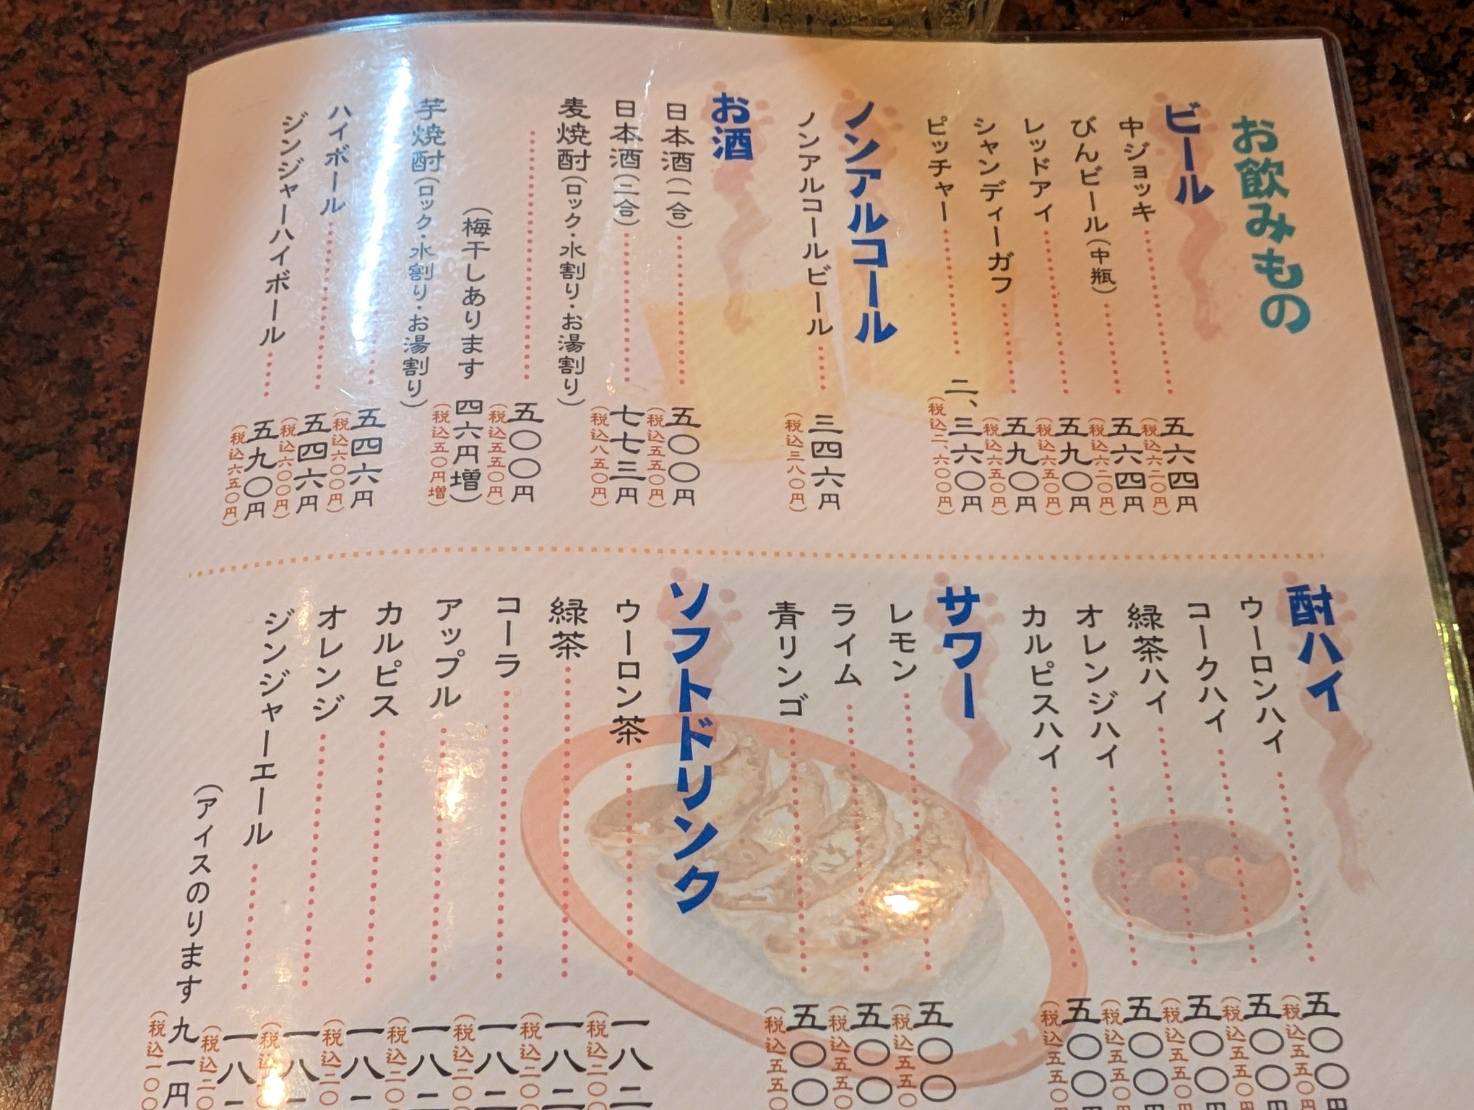 お飲みもの
ビール
中ジョッキ 五六四円
(税込六二〇円)
びんビール(中瓶) 五六四円
(税込六二〇円)
レッドアイ 五九〇円
(税込六五〇円)
シャンディーガフ 五九〇円
(税込六五〇円)
ピッチャー 二、三六〇円
(税込二、六〇〇円)
ノンアルコール
ノンアルコールビール 三四六円
(税込三八〇円)
お酒
日本酒(一合) 五〇〇円
(税込五五〇円)
日本酒(二合) 七七三円
(税込八五〇円)
麦焼酎(ロック・水割り・お湯割り)
五〇〇円
(税込五五〇円)
(梅干しあります 四六円増)
(税込五〇円増)
芋焼酎(ロック・水割り・お湯割り)
五四六円
(税込六〇〇円)
ハイボール 五四六円
(税込六〇〇円)
ジンジャーハイボール 五九〇円
(税込六五〇円)
酎ハイ
ウーロンハイ 五〇〇円
(税込五五〇
コークハイ 五〇〇円
(税込五五〇
緑茶ハイ 五〇〇円
(税込五五〇
オレンジハイ 五〇〇円
(税込五五〇
カルピスハイ 五〇〇円
(税込五五〇
サワー
レモン 五〇〇
(税込五五〇
ライム 五〇〇
(税込五五〇
青リンゴ 五〇〇
(税込五五〇
ソフトドリンク
ウーロン茶 一八二
(税込二〇〇
緑茶 一八二
(税込二〇〇
コーラ 一八二
(税込二〇〇
アップル 一八二
(税込二〇
カルピス 一八二
(税込二〇
オレンジ 一八二
(税込二〇
ジンジャーエール 一八二
(税込二〇
(アイスのります 九一円
(税込一〇〇